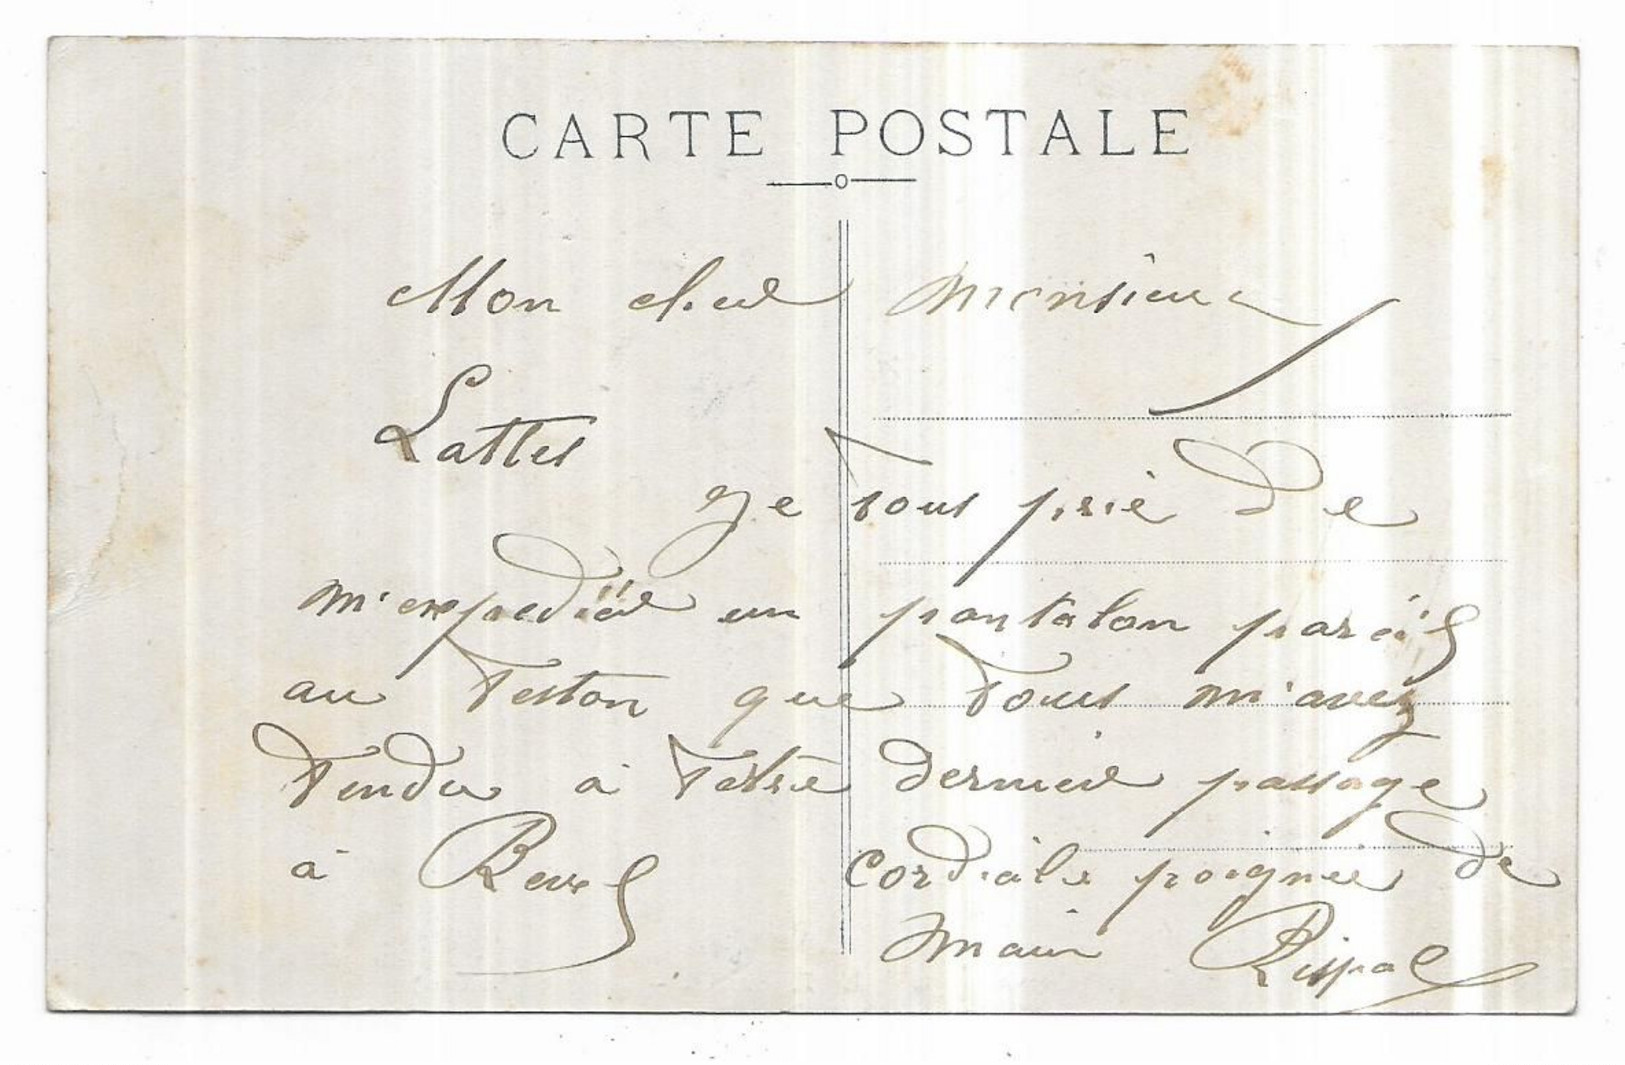 CARTE POSTALE
Mon cher Monsieur
Lattes
Je vous prie de
m'expedier un pantalon pareil
au veston que vous m'avez
vendu à votre dernier passage
à Revel Cordiale poignée de
main Rispal